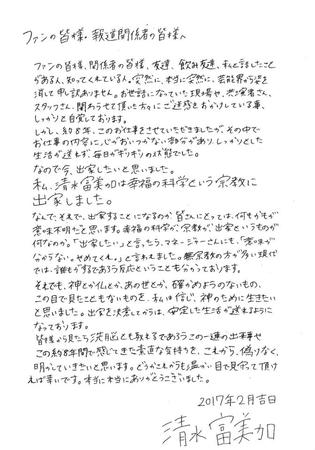 ファンの皆様。報道関係者の皆様へ
ファンの皆様、関係者の皆様、友達、飲み友達、私と話したこと
がある人、知ってくれている人。突然に、本当に突然に、芸能界から姿を
消して申し訳ありません。お世話になっていた現場や、共演者さん、
スタッフさん、関わらせて頂いた方々にご迷惑をおかけしている事、
しっかりと自覚しております。
しかし、約8年、このお仕事をさせていただきましたが、その中で
お仕事の内容に、心がおいつかない部分があり、しっかりとした
生活が送れず、毎日がギリギリの状態でした。
なので今、出家したいと思いました。
私、清水富美加は幸福の科学という宗教に
出家しました。
なんで、それで、出家することになるのか皆さんにとっては、何もかもが
意味不明だと思います。幸福の科学が、宗教が、出家というものが
何なのか。「出家したい」と言ったら、マネージャーさんにも、「意味が
分からない。やめてくれ。」と言われました。無宗教の方が多い現代
では、誰もがするであろう反応ということも分かっております。
それでも、神とか仏とか、あの世とか、確かめようのないもの、
この目で見たこともないものを、私は信じ、神のために生きたい
と思いました。出家を決意してからは、安定した生活が送れるように
なっております。
皆様から見たら洗脳とも取れるであろうこの一連の出来事や
この約8年間で感じてきた素直な気持ちを、これから、偽りなく、
明かしていきたいと思います。どうかこれからも温かい目で見守って頂け
れば幸いです。本当に本当にありがとうございました。
2017年2月吉日
清水富美加